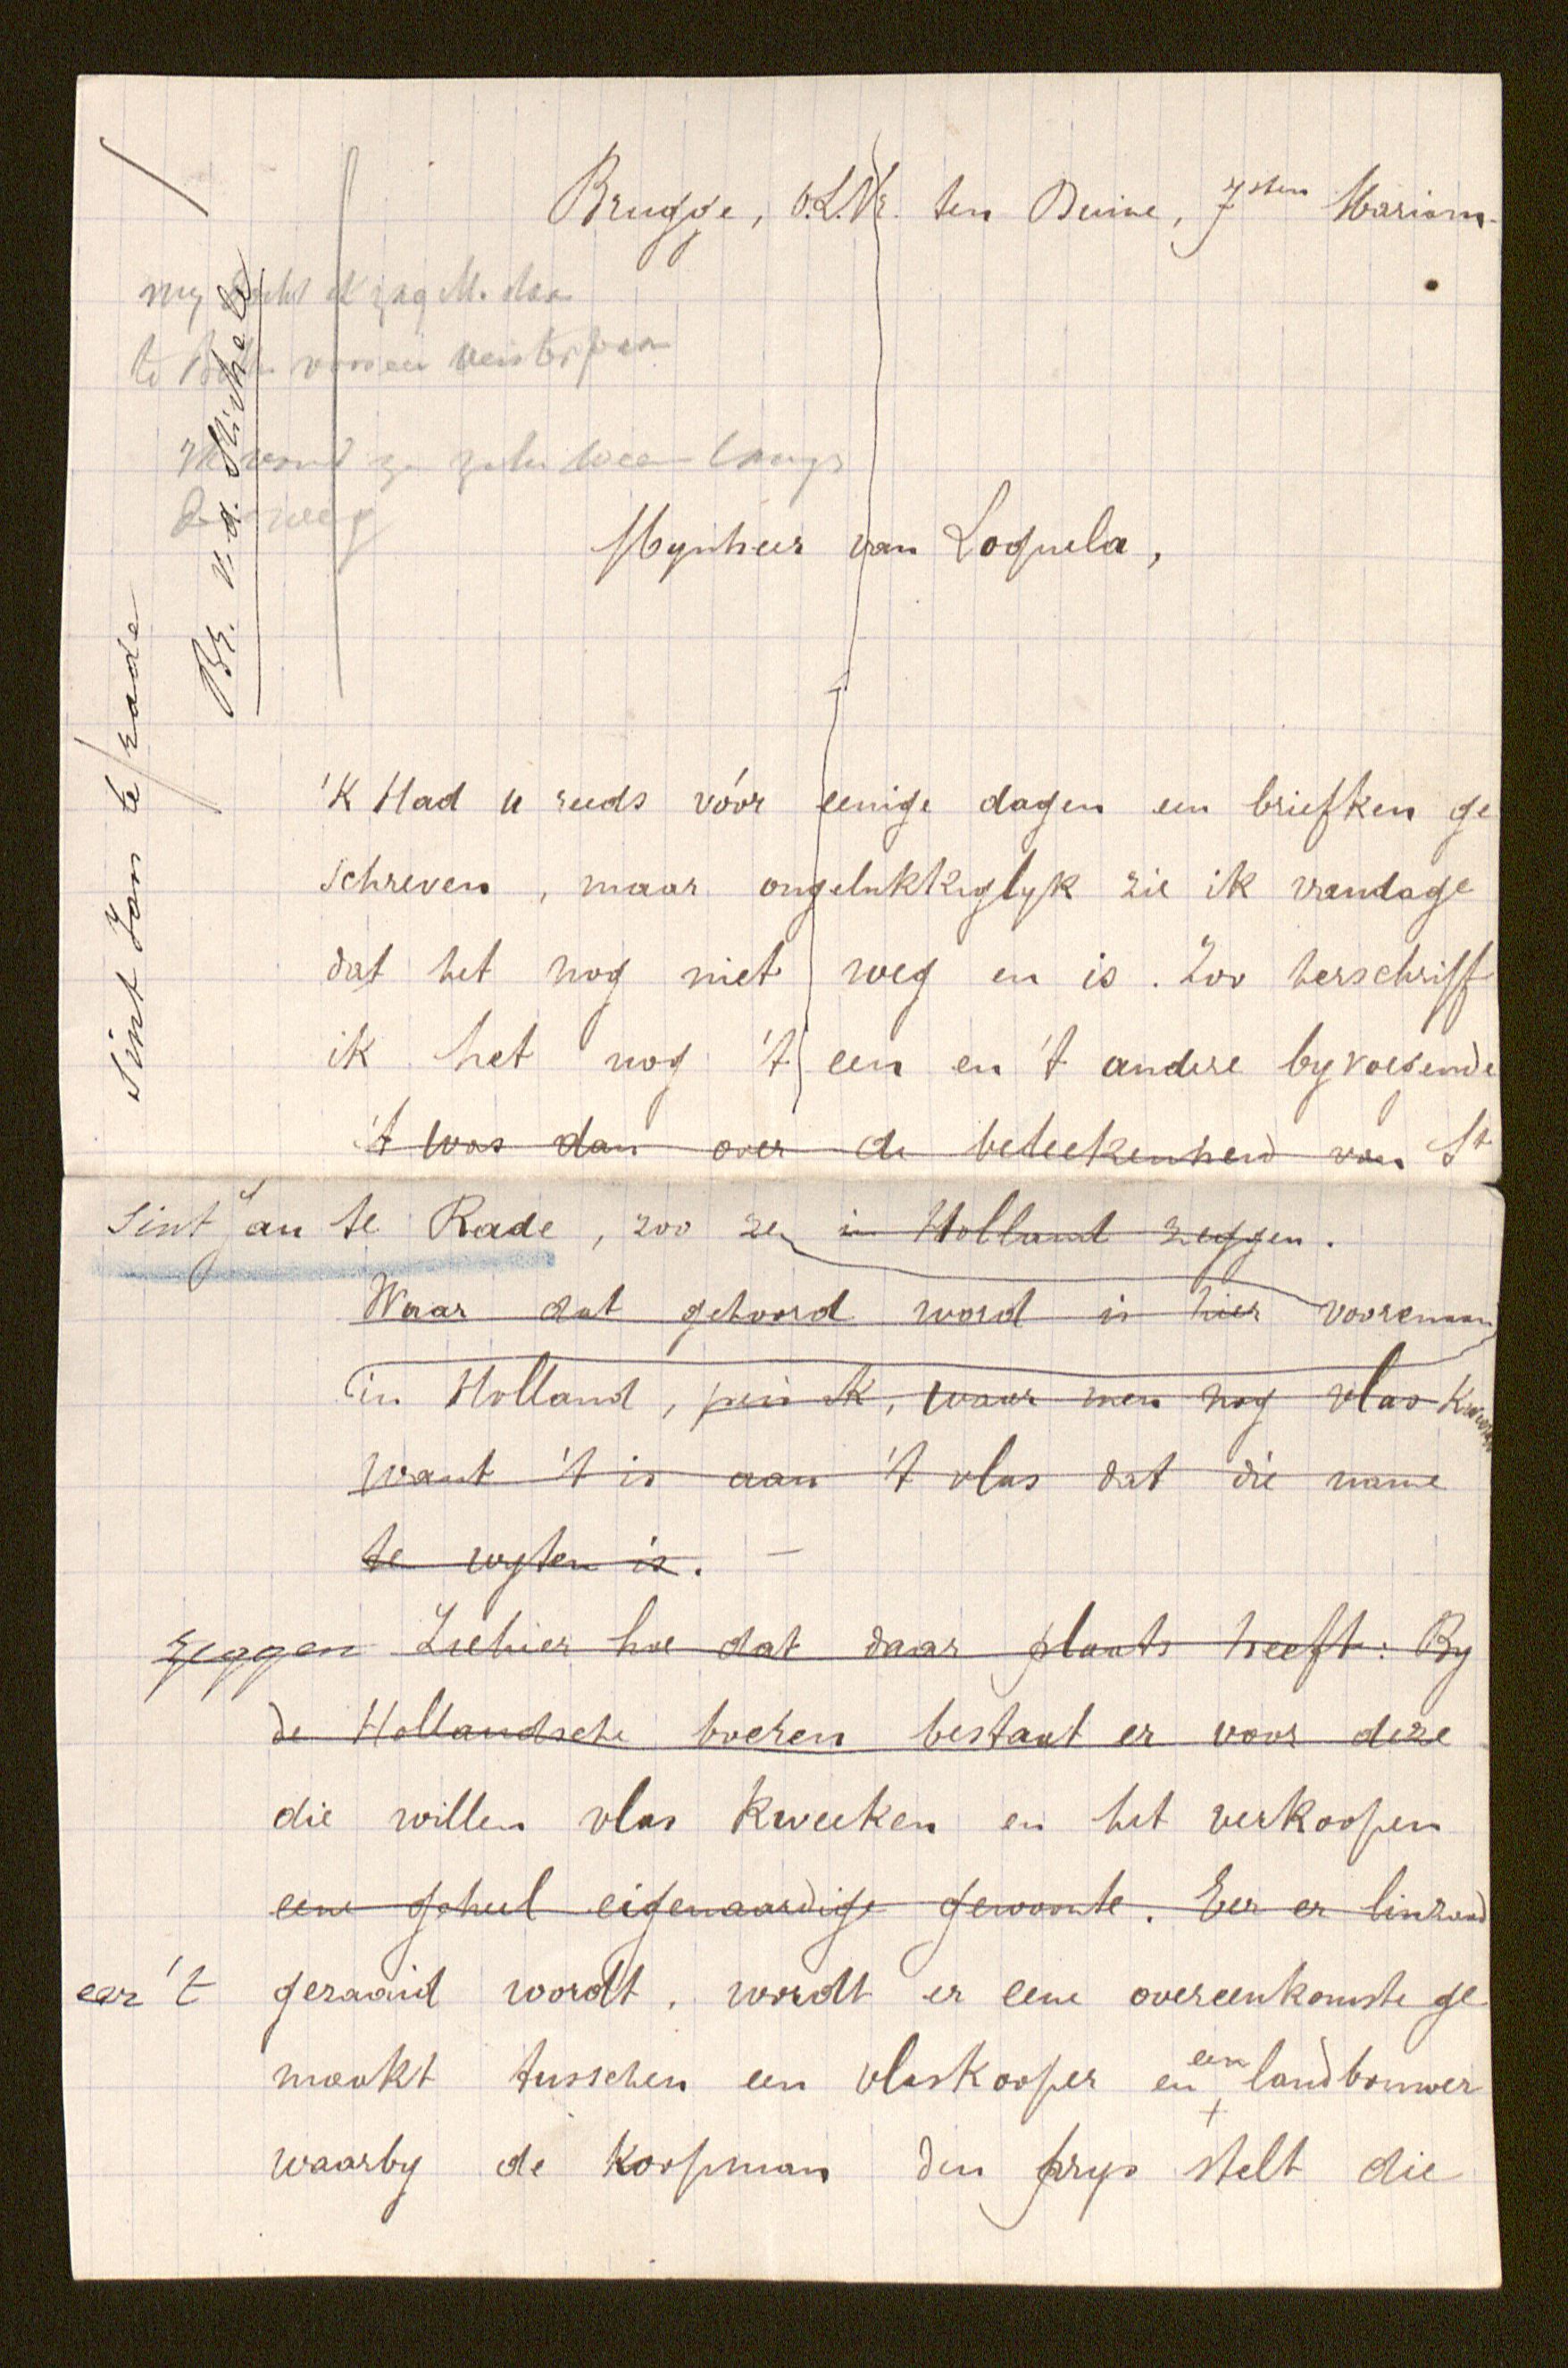 Brugge, O.L.Vr. ten Duine, 7sten Mariam.
Br. v.d. Michele
Sint Jan te rade
Mynheer van Loquela,
'K Had u reeds vóór eenige dagen een briefken ge
schreven, maar ongelukkiglyk zie ik vandage
dat het nog niet weg en is. Zoo herschrijf
ik het nog 't een en 't andere byvoegende
't was dan over de beteekenheid van St
Sint Jan te Rade, zoo ze in Holland zeggen.
Waar dat gehoord word is hier vooraan
in Holland, peis ik, waar men nog vlas kweekt
want 't is aan 't vlas dat die name
te wyten is. —
zeggen Ziehier hoe dat daar plaats heeft: By
de Hollandsche boeren bestaat er voor deze
die willen vlas kweeken en het verkoopen
eene geheel eigenaardige gewoonte. Eer er linzaad
eer 't gezaaid wordt, wordt er eene overeenkomste ge
maakt tusschen een vlaskooper en een landbouwer
waarby de koopman den prys stelt die